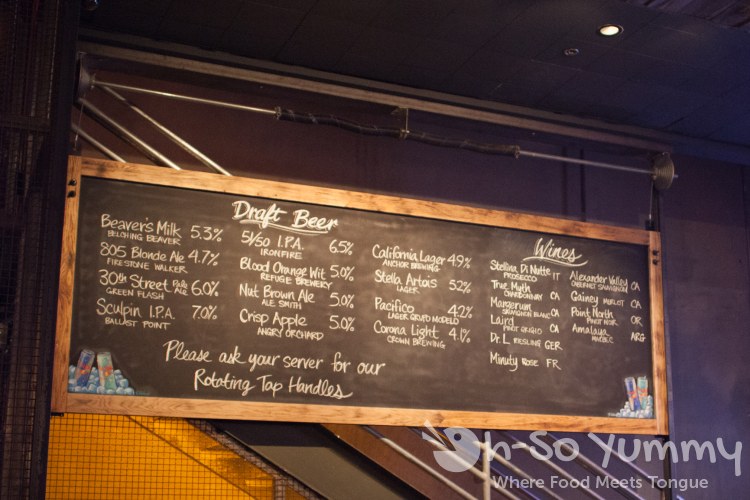 Draft Beer
Beaver's Milk 5.3%
BELCHING BEAVER
805 Blonde Ale 4.7%
FIRESTONE WALKER
30th Street Pale Ale 6.0%
GREEN FLASH
Sculpin I.P.A. 7.0%
BALLAST POINT
51/50 I.P.A. 6.5%
IRONFIRE
Blood Orange Wit 5.0%
REFUGE BREWERY
Nut Brown Ale 5.0%
ALE SMITH
Crisp Apple 5.0%
ANGRY ORCHARD
California Lager 4.9%
ANCHOR BREWING
Stella Artois 5.2%
LAGER
Pacifico 4.2%
LAGER GRUPO MODELO
Corona Light 4.1%
CROWN BREWING
Please ask your server for our
Rotating Tap Handles
Wines
Stellina Di Notte IT
PROSECCO
True Myth
CHARDONNAY CA
Margerum
SAUVIGNON BLANC CA
Laird
PINOT GRIGIO CA
Dr. L RIESLING GER
Minuty ROSE FR
Alexander Valley CA
CABERNET SAUVIGNON
Gainey MERLOT CA
Point North
PINOT NOIR OR
Amalaya ARG
MALBEC
Oh-So Yummy
Where Food Meets Tongue